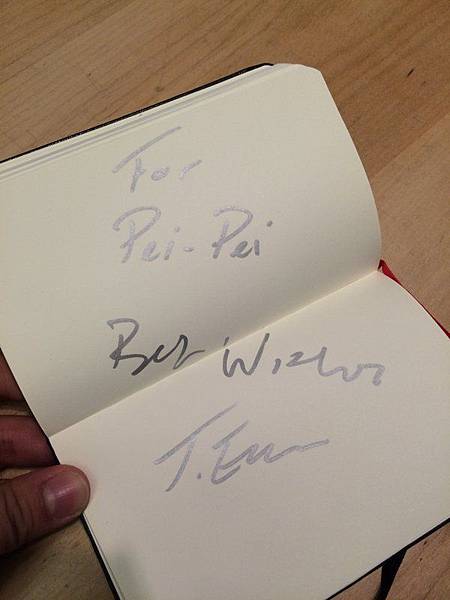 For
Pei-Pei
Best Wishes